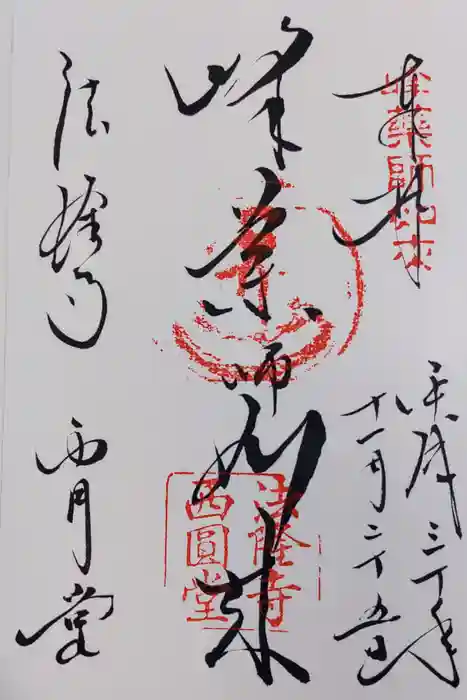 奉拝
平成三十年
十一月二十五日
峰薬師如来
法隆寺
西円堂
峯薬師如来
法隆寺
西圓堂